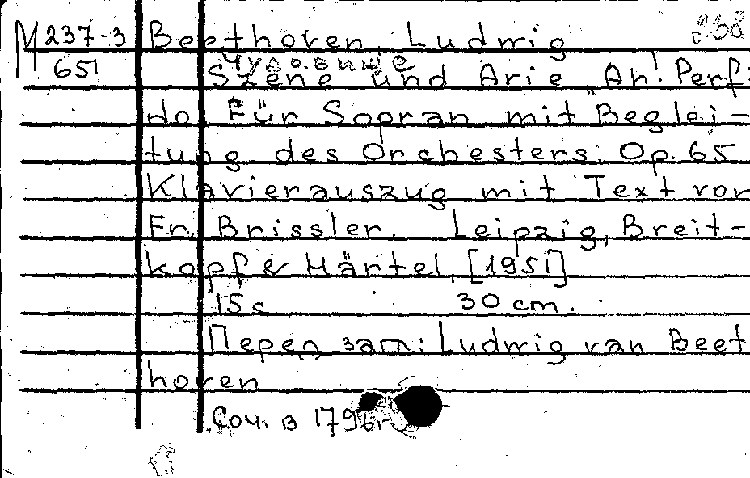 М 237-3 Beethoven, Ludwig
651 Чудовище
Szene und Arie „Ah! Perfi-
do. Für Sopran mit Beglei-
tung des Orchesters. Op. 65
Klavierauszug mit Text von
Fr. Brissler. Leipzig, Breit-
kopf & Härtel, [1951]
15 s 30 cm.
Перед загл: Ludwig van Beet
hoven
Соч. в 1796 г